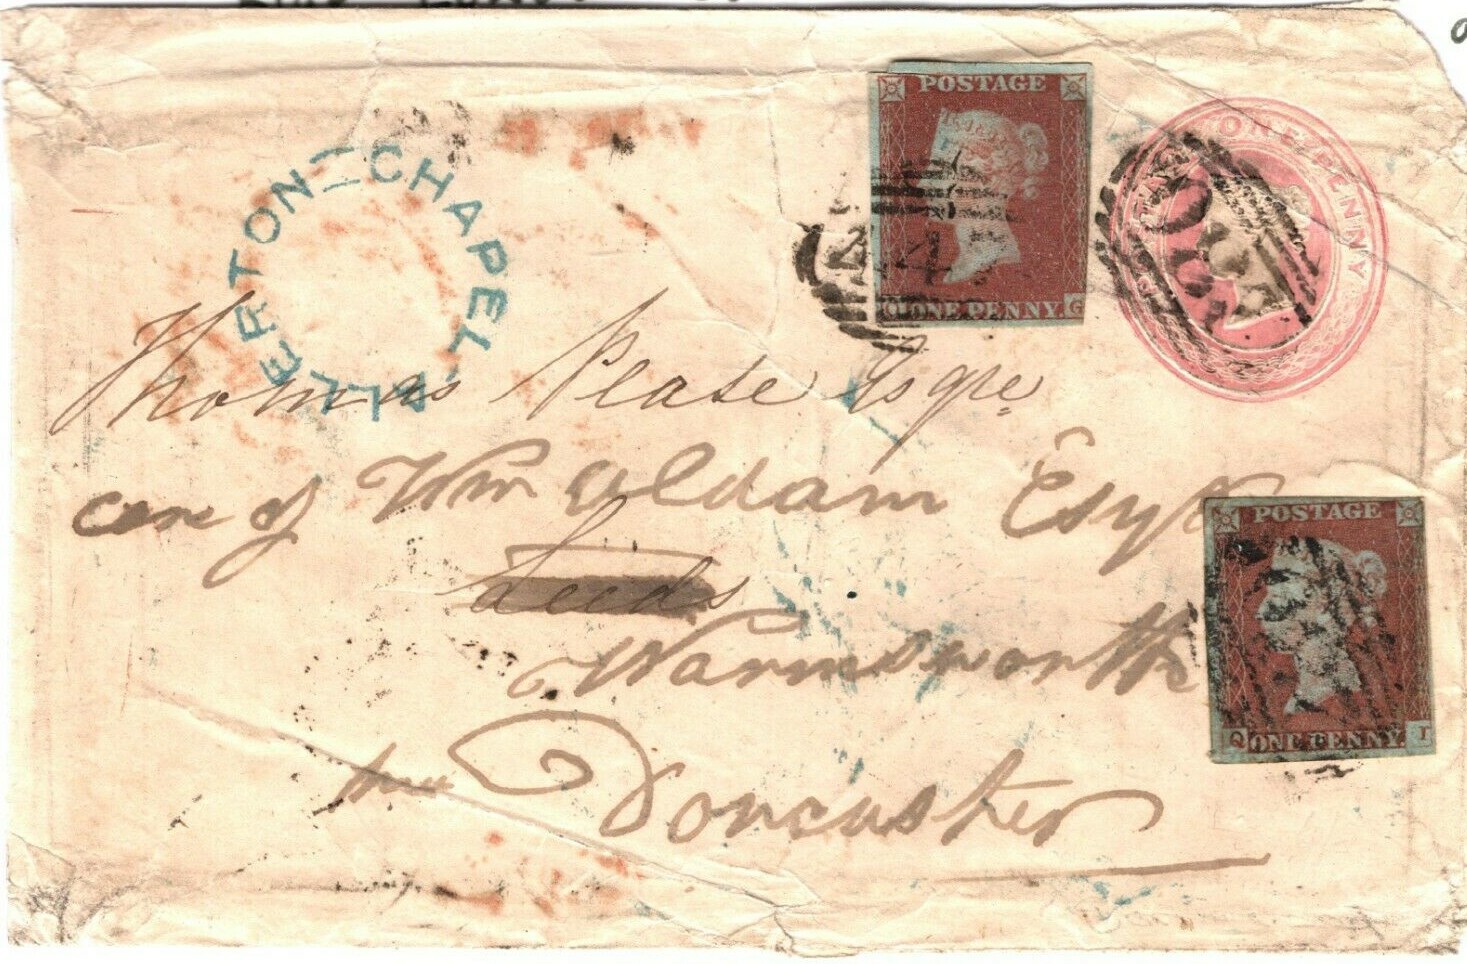 CHAPEL ALLERTON
POSTAGE
ONE PENNY.
Q G
ONE PENNY
Thomas Pease Esqre
care of Wm Aldam Esqre
Leeds
Warmsworth
near Doncaster
POSTAGE
Q ONE PENNY. I